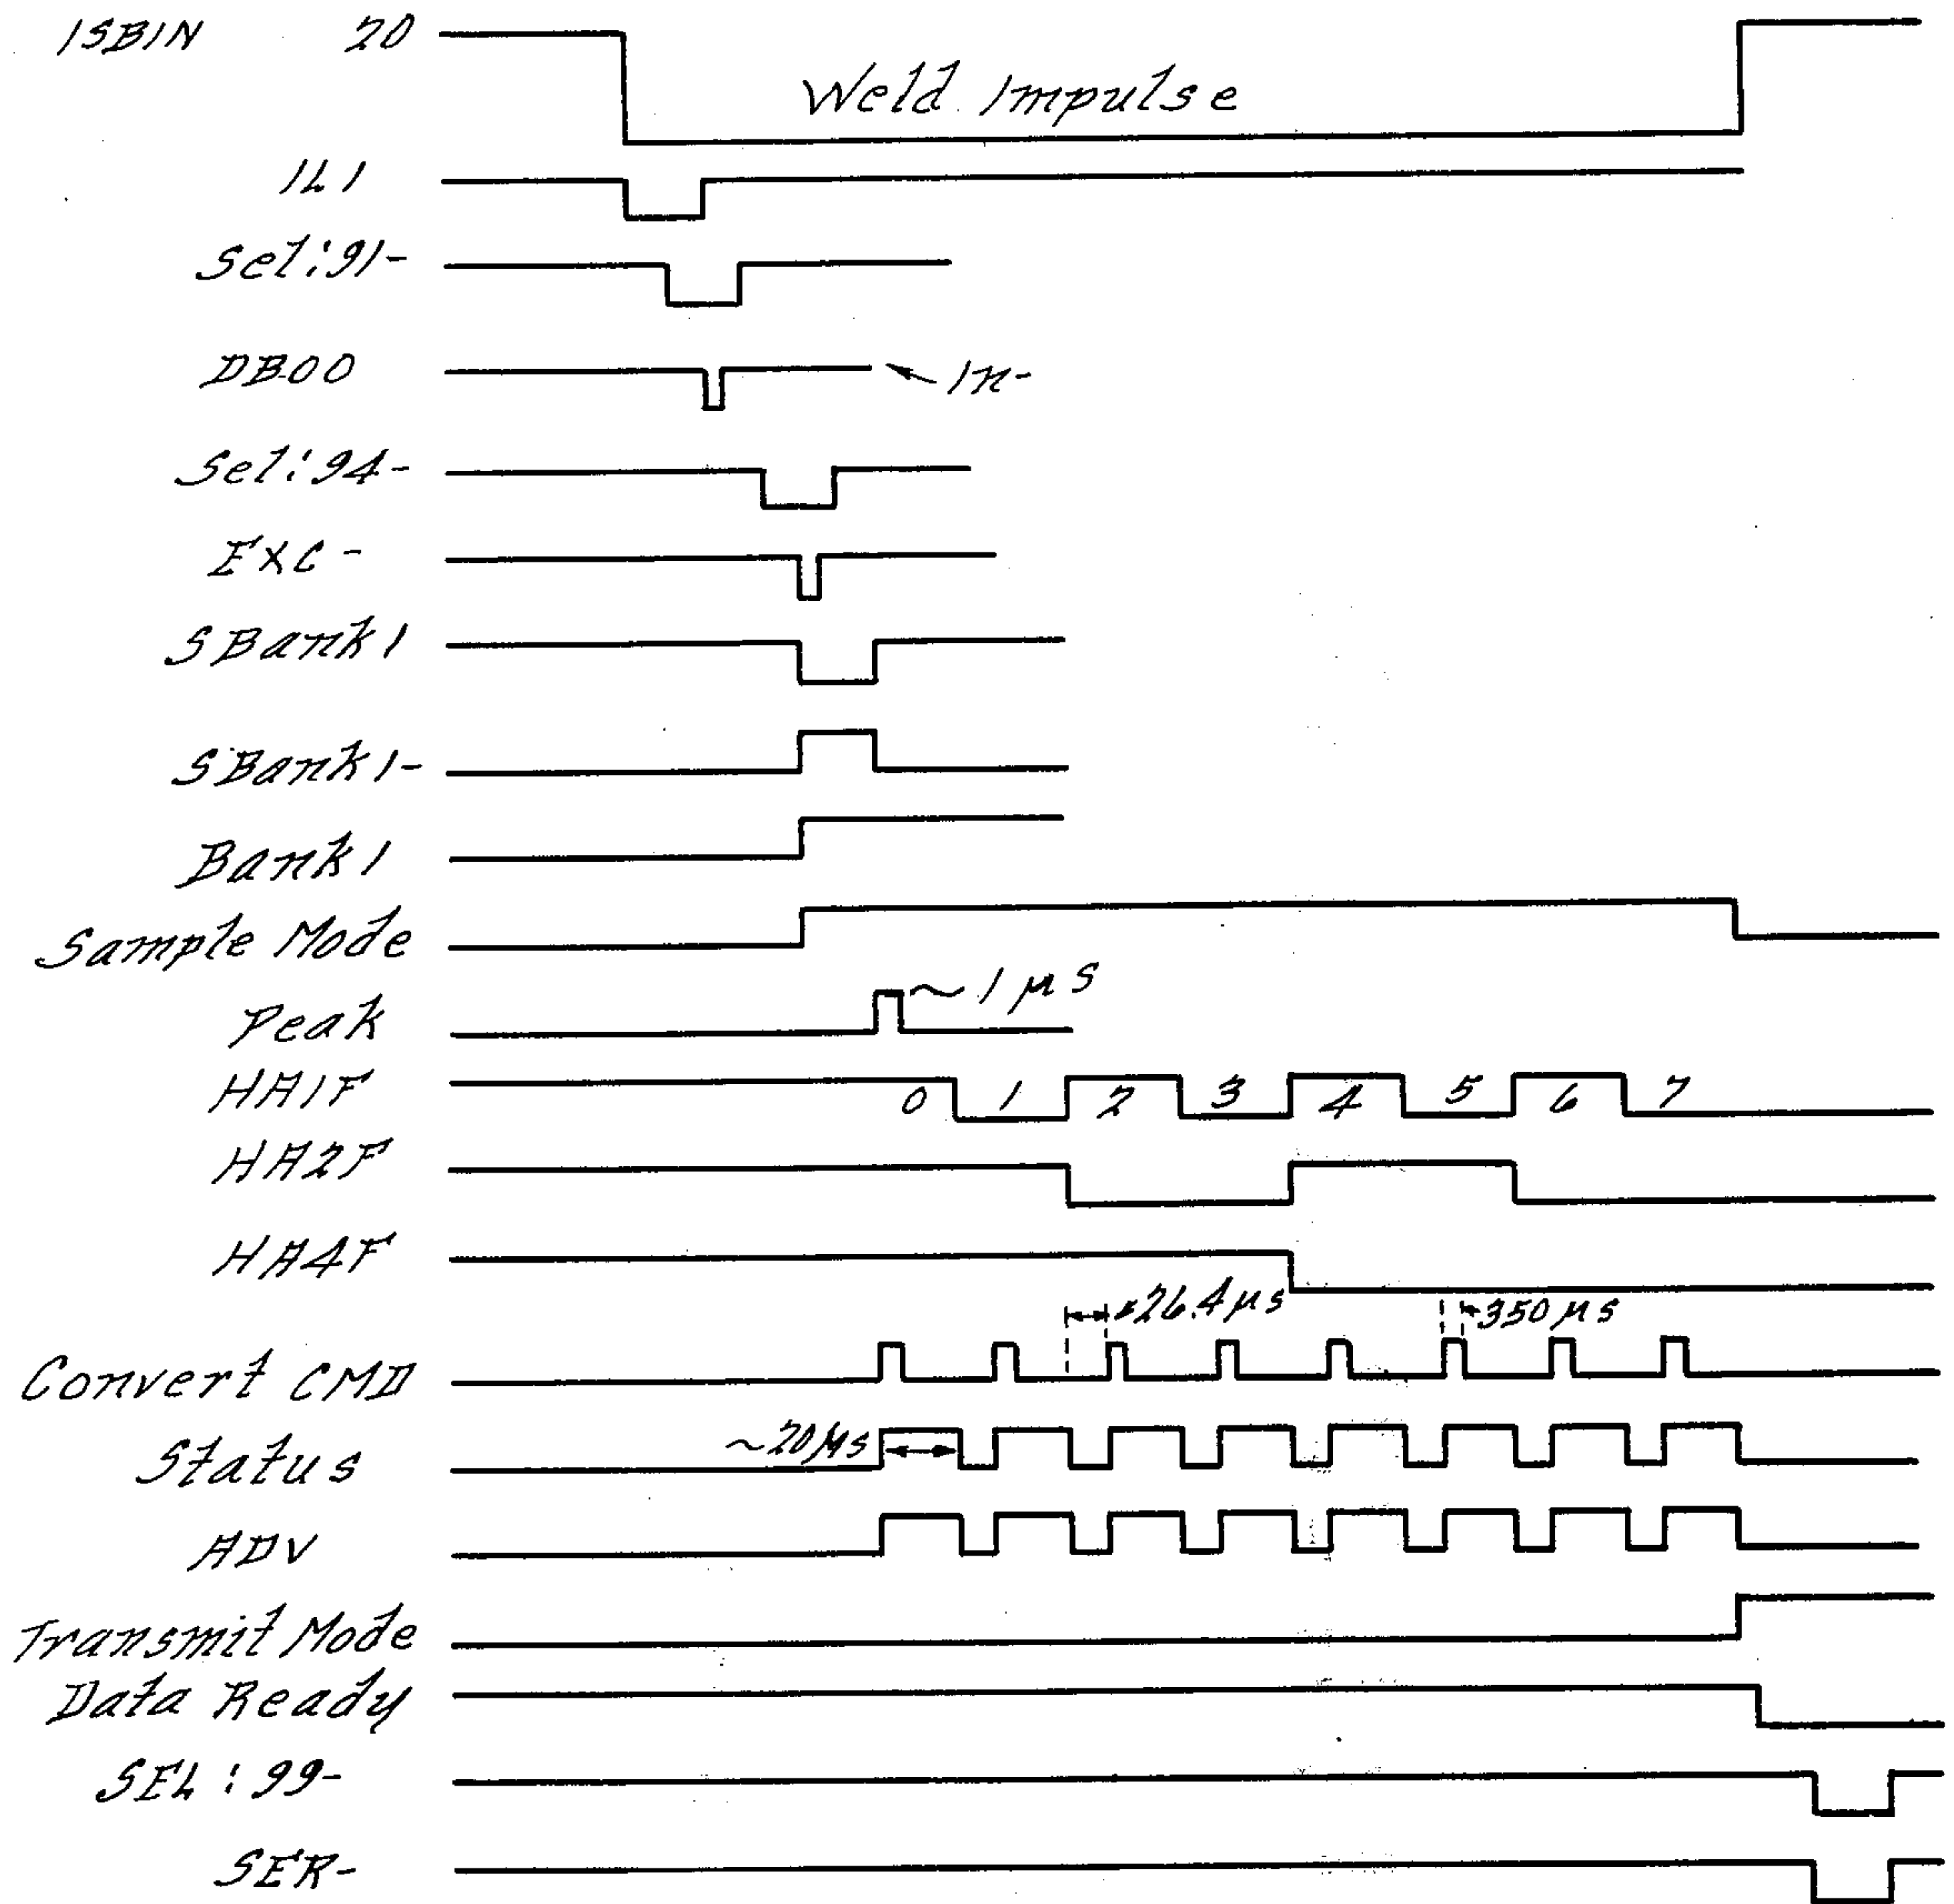 ISBIN 20
Weld Impulse
IL1
Sel:91-
DB00
In-
Sel:94-
EXC-
SBank1
SBank1-
Bank1
Sample Mode
~1 μs
Peak
HA1F 0 1 2 3 4 5 6 7
HA2F
HA4F
26.4 μs 350 μs
Convert CMD
~20 μs
Status
ADV
Transmit Mode
Data Ready
SEL:99-
SER-